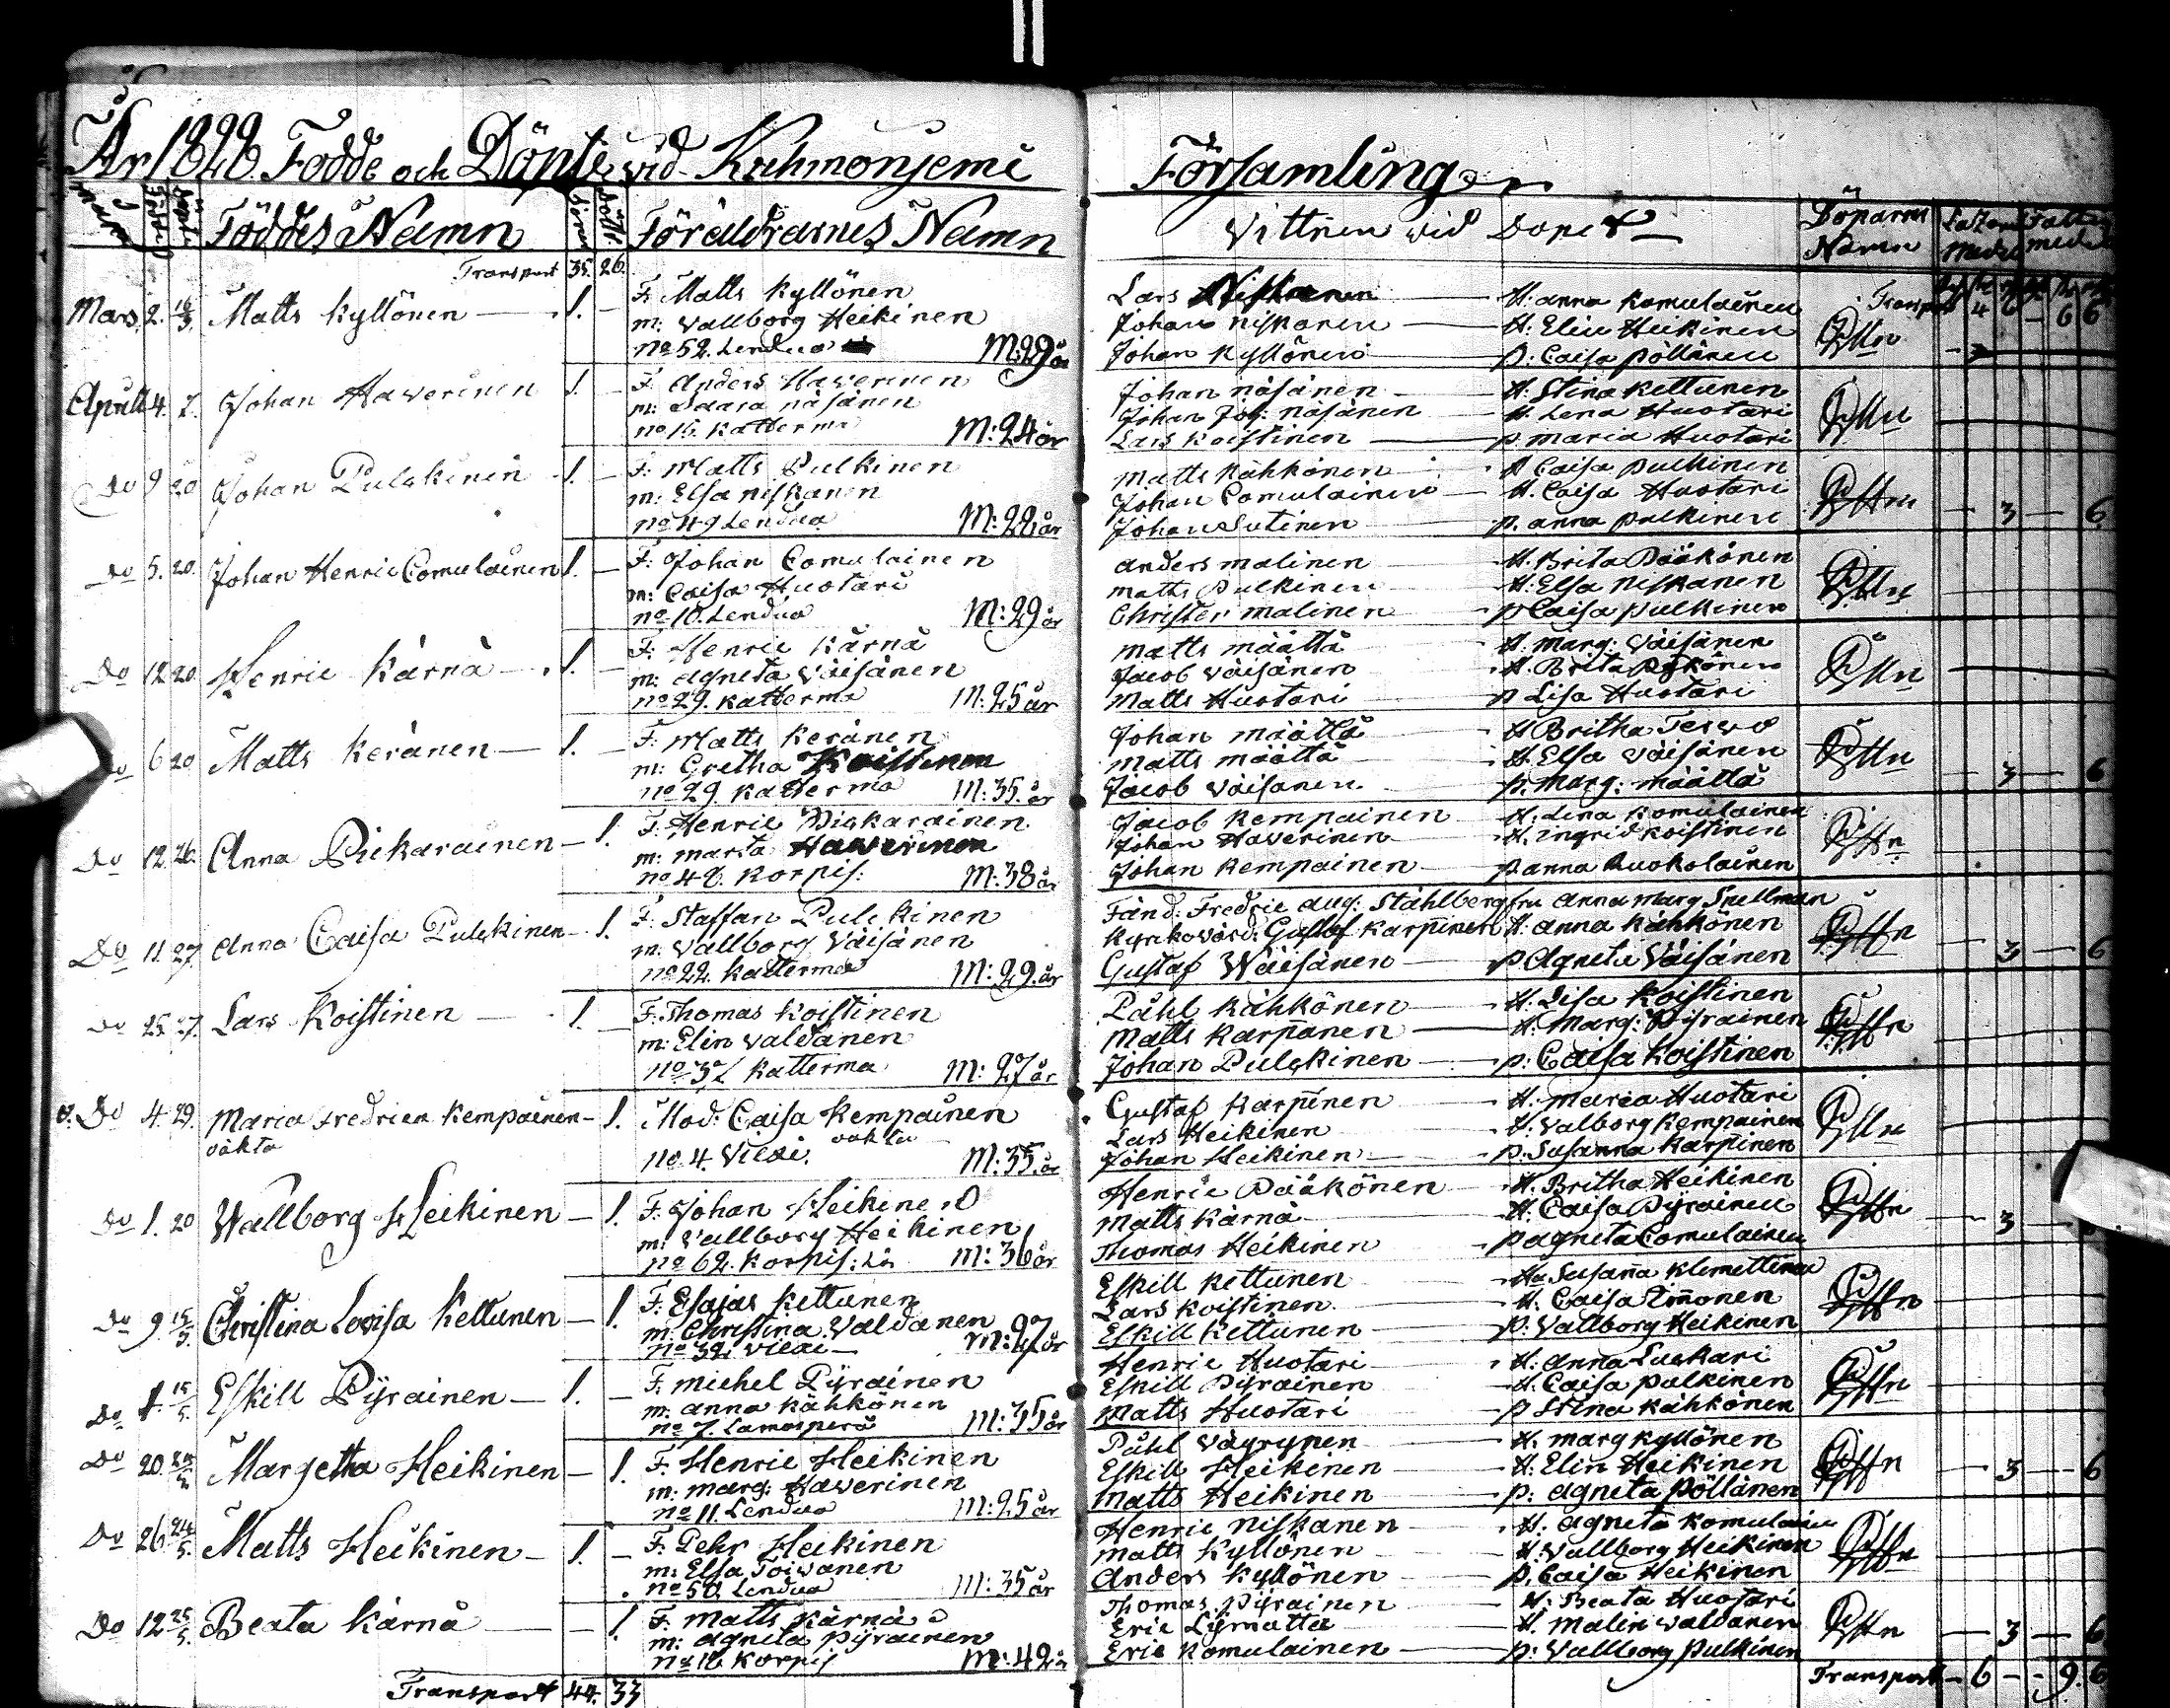 År 1822. Födde och Döpte vid Kuhmonjemi Församlingen
Födde Döpte Föddes Namn Söner Döttr Föräldrarnes Namn Vittnen vid Dopet Döparens Namn
Transport 35. 26.
Transport 4 6 – 6 6
Mars 2. 16/3. Matts Kyllönen — 1. —
F. Matts Kyllönen
m: Vallborg Heikinen
No 52. Lendua M: 29 år
Lars Niskanen — H. Anna Komulainen
Johan Niskanen — H. Elin Heikinen
Johan Kyllönen — p: Caisa Pöllänen
Aprill 4. 7. Johan Haverinen 1. —
F. Anders Haverinen
m: Saara Näsänen
no 16. Katterma M: 24 år
Johan Näsänen — H. Stina Kettunen
Johan Joh: Näsänen — H. Lena Huotari
Lars Koistinen — p. Maria Huotari
Do 9 20 Johan Pulckinen 1. —
F: Matts Pulkinen
m: Elsa Niskanen
no 49 Lendua M: 22 år
Matts Kähkönen — H Caisa Pulkinen
Johan Comulainen — H. Caisa Huotari
Johan Sutinen — p. Anna Pulkinen — 3 — 6.
Do 5. 20. Johan Henric Comulainen 1. —
F: Johan Comulainen
m: Caisa Huotari
no 10. Lendua M: 29 år
Anders Malinen — H. Brita Pääkönen
Matts Pulkinen — H: Elsa Niskanen
Christer Malinen — p Caisa Pulkinen
Do 12 20 Henric Kärnä — 1. —
F: Henric Kärnä
m: Agneta Väisänen
no 29. Katterma M: 25 år
Matts Määttä — H. Marg: Väisänen
Jacob Väisänen — H. Brita
Matts Huotari — p Lisa Huotari
Do 6 20 Matts Keränen — 1. —
F: Matts Keränen
m: Gretha Koistinen
no 29. Katterma M: 35. år
Johan Määttä — H Britha Terwo
Matts Määttä — H. Elsa Väisänen
Jacob Väisänen — p. Marg: Määttä — 3 — 6
Do 12. 26. Anna Pickarainen — 1.
F. Henric Pickarainen
m: Marta Haverinen
no 42. Korpis: M: 38 år
Jacob Kempainen — H. Lena Komulainen
Johan Haverinen — H. Ingrid Koistinen
Johan Kempainen — p Anna Ruokolainen
Do 11 27. Anna Caisa Pulckinen — 1.
F. Staffan Pulckinen
m: Vallborg Väisänen
no 22. Katterma M: 29. år
Fänd: Fredric Aug: Ståhlberg fru Anna Marg Snellman
Kyrkovärd: Gustaf Karpinen H. Anna Kähkönen
Gustaf Wäisänen — p Agneta Väisänen — 3 — 6
Do 25. 27. Lars Koistinen — 1. —
F. Thomas Koistinen
m: Elin Valdanen
no 32 Katterma M: 27 år
Påhl Kähkönen — H. Lisa Koistinen
Matts Karpanen — H: Marg: Pyrainen
Johan Pulckinen — p: Caisa Koistinen
Do 4. 29. Maria Fredrica Kempainen — 1.
oäkta
Mod: Caisa Kempainen
oäkta
No 4. Vieki. M: 35. år
Gustaf Karpinen — H. Maria Huotari
Lars Heikinen — H. Valborg Kempainen
Johan Heikinen — p. Susanna Karpinen
Do 1. 20 Wallborg Heikinen — 1.
F: Johan Heikinen
m: Vallborg Heikinen
no 62. Korpis: M: 36 år
Henric Pääkönen — H. Britha Heikinen
Matts Kärnä — H. Caisa Pyrainen
Thomas Heikinen — p Agneta Comulainen — 3
Do 9. 15/5. Christina Lovisa Kettunen — 1.
F. Esajas Kettunen
m: Christina Valdanen
no 32. Vieki — M: 27 år
Eskill Kettunen — Ha Susanna Klemettinen
Lars Koistinen — H. Caisa Timonen
Eskill Kettunen — p. Vallborg Heikinen
Do 1. 15/5. Eskill Pyrainen — 1. —
F. Michel Pyrainen
m: Anna Kähkönen
no 7. Lamasperä M: 35 år
Henric Huotari — H: Anna Luskari
Eskill Pyrainen — H. Caisa Pulkinen
Matts Huotari — p Stina Kähkönen
Do 20. Margetha Heikinen — 1.
F. Henric Heikinen
m: Marg: Haverinen
no 11. Lendua M: 25 år
Påhl Väyrynen — H. Marg Kyllönen
Eskill Heikinen — H: Elin Heikinen
Matts Heikinen — p: Agneta Pöllänen — 3 — 6
Do 26 24/5. Matts Heikinen — 1. —
F. Pehr Heikinen
m: Elsa Toivanen
no 50. Lendua M: 35 år
Henric Niskanen — H. Agneta Komulainen
Matts Kyllönen — H: Vallborg Heikinen
Anders Kyllönen — p. Caisa Heikinen
Do 12 25/5. Beata Kärnä — 1.
F. Matts Kärnä
m: Agneta Pyrainen
no 12 Korpis M: 42 å
Thomas Pyrainen — H: Beata Huotari
Eric Lymatta — H. Malin Valdanen
Eric Komulainen — p: Vallborg Pulkinen — 3 — 6
Transport 44. 33
Transport – 6 – – 9. 6